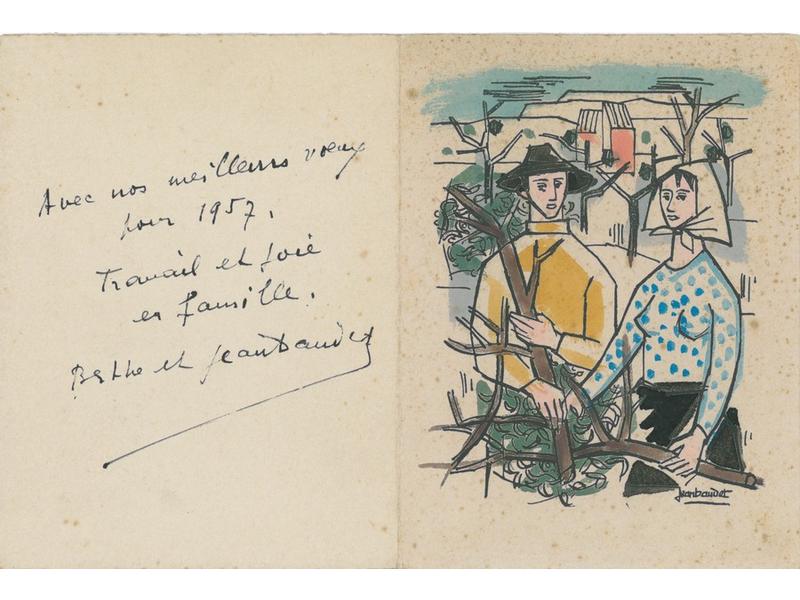 Avec nos meilleurs vœux
pour 1957.
Travail et joie
en famille.
Berthe et Jeanbaudet
Jeanbaudet